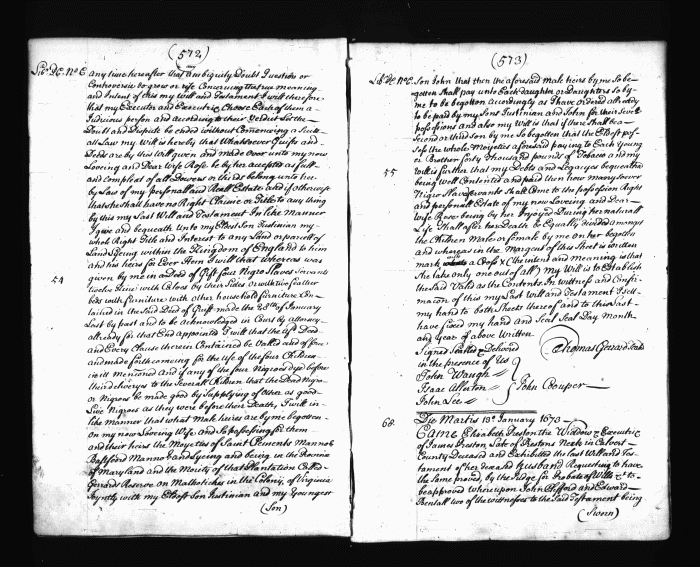 (572)
Lib: D.C. No. C. Any time hereafter that any ambiguity Doubt Question or
Controversie to grow or rise Concerning the true meaning
and Intent of this my will and Testament I will therefore
that my Executor and Executrix Choose Each of them a
Judicious person and according to their Verdict let the
Doubt and Dispute be ended without Comencing a Suite
att Law My will is hereby that Whatsoever Guifts and
Debts are by this will given and made over unto my now
Loveing and Dear Wife Rose be by her accepted as full
and compleat of all Dowers or thirds belong unto her
by Law of my personall and Reall Estate and if otherwise
that she shall have no Right Claime or Title to any thing
by this my Last Will and Testament In like Manner
I give and bequeath Unto my Eldest Son Justinian my
whole Right Title and Interest to any Land or parcell of
Land Lyeing within the Kingdom of England to him
and his heirs for Ever Item I will that whereas was
54
given by me in a Deed of Gift four Negro Slaves Servants
twelve kine with Calves by their Sides or with two feather
beds with furniture with other household furniture Con-
tained in the Said Deed of Guift made the 28th of January
Last by past and to be Acknowledged in Court By Attorney
allready for that End appointed I will that the afsd Deed
and Every Clause therein Contained be Valled and of force
and made forthcomeing for the Use of the four Children
in it Mentioned And if any of the four Negroes dyed before
their deliverys to the Severall Children that the Dead Negro
or Negroes be made good by Supplying of Other as good
Live Negroes as they were before their Death, I will in
like Manner that what Male heirs are by me begotten
on my now Loveing Wife and So possessing for them
and their heirs the Moyeties of Saint Clements Mannor
Basford Mannor Land Lyeing and being in the Province
of Maryland and the Moiety of that Plantation Called
Gerrards Reserve on Malhotickes in the Colony of Virginia
Joyntly with my Eldest Son Justinian and my Youngest
(Son)
(573)
Lib: D.C. No. C. Son John that then the aforesaid Male heirs by me So be-
gotten Shall pay unto Each Daughter or Daughters So by
me to be begotten Accordingly as I have ordered allready
to be paid by my Sons Justinian and John for their Severll
possessions and also my Will is that if there Shall be a
Second or third Son by me So begotten that the Eldest pos-
sess the whole Moyeties aforesaid paying to Each Young
er Brother forty thousand pounds of Tobacco and my
55
will is further that my Debts and Legacyes bequeathed
being Well Contented and paid then how many Soever
Negro Slave Servants Shall Come to the possession Right
and personall Estate of my now Loveing and Dear
Wife Rose being by her Injoyed During her naturall
Life Shall after her Death be Equally divided amongst
the Children Male or female by me on her begotten
and whereas in the Margent of this Sheet is written
mark a Cross X (the intent and meaning is that
She take only one out of all) My Will is to Establish
the Said Valid as the Contents. In witness and Confir-
mation of this my Last Will and Testament I Sett
my hand to both Sheets thereof and to this Last
have fixed my hand and Seal Seal Day month
and Year of above Written
Signed Sealed & Delivered
in the presence of Us
Thomas Gerrard Seal
John Waugh
Isaac Allerton
John Cooper
John Lee
68
Die Martis 13º January 1673
Came Elizabeth Preston the Widdow & Executrix
of James Preston Late of Prestons Neck in Calvert
County Deceased and Exhibited the last Will and Tes-
tament of her deceased husband Requesting to have
the Same proved, by the Judge for Probate of Wills &c to
be approved Whereupon John Clifford and Edward
Bentall two of the wittnesses to the Said Testament being
(Sworn)